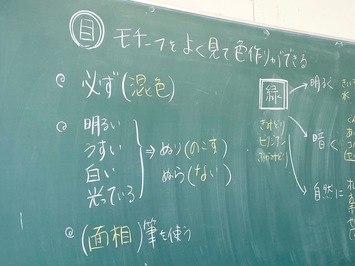 目 モチーフをよく見て色作りができる
必ず(混色)
明るい
うすい
白い
光っている
⇒ ぬり(のこす)
ぬら(ない)
(面相)筆を使う
緑
きみどり
ビリジアン
ふかみどり
→明るく
→暗く
→自然に